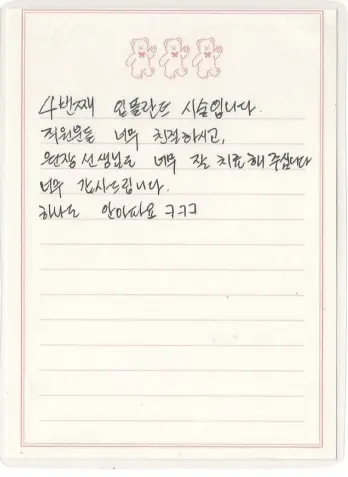 4번째 임플란트 시술입니다.
직원분들 너무 친절하시고,
원장선생님도 너무 잘 치료해 주십니다
너무 감사드립니다.
하나도 안아파요 ㅋㅋㅋ